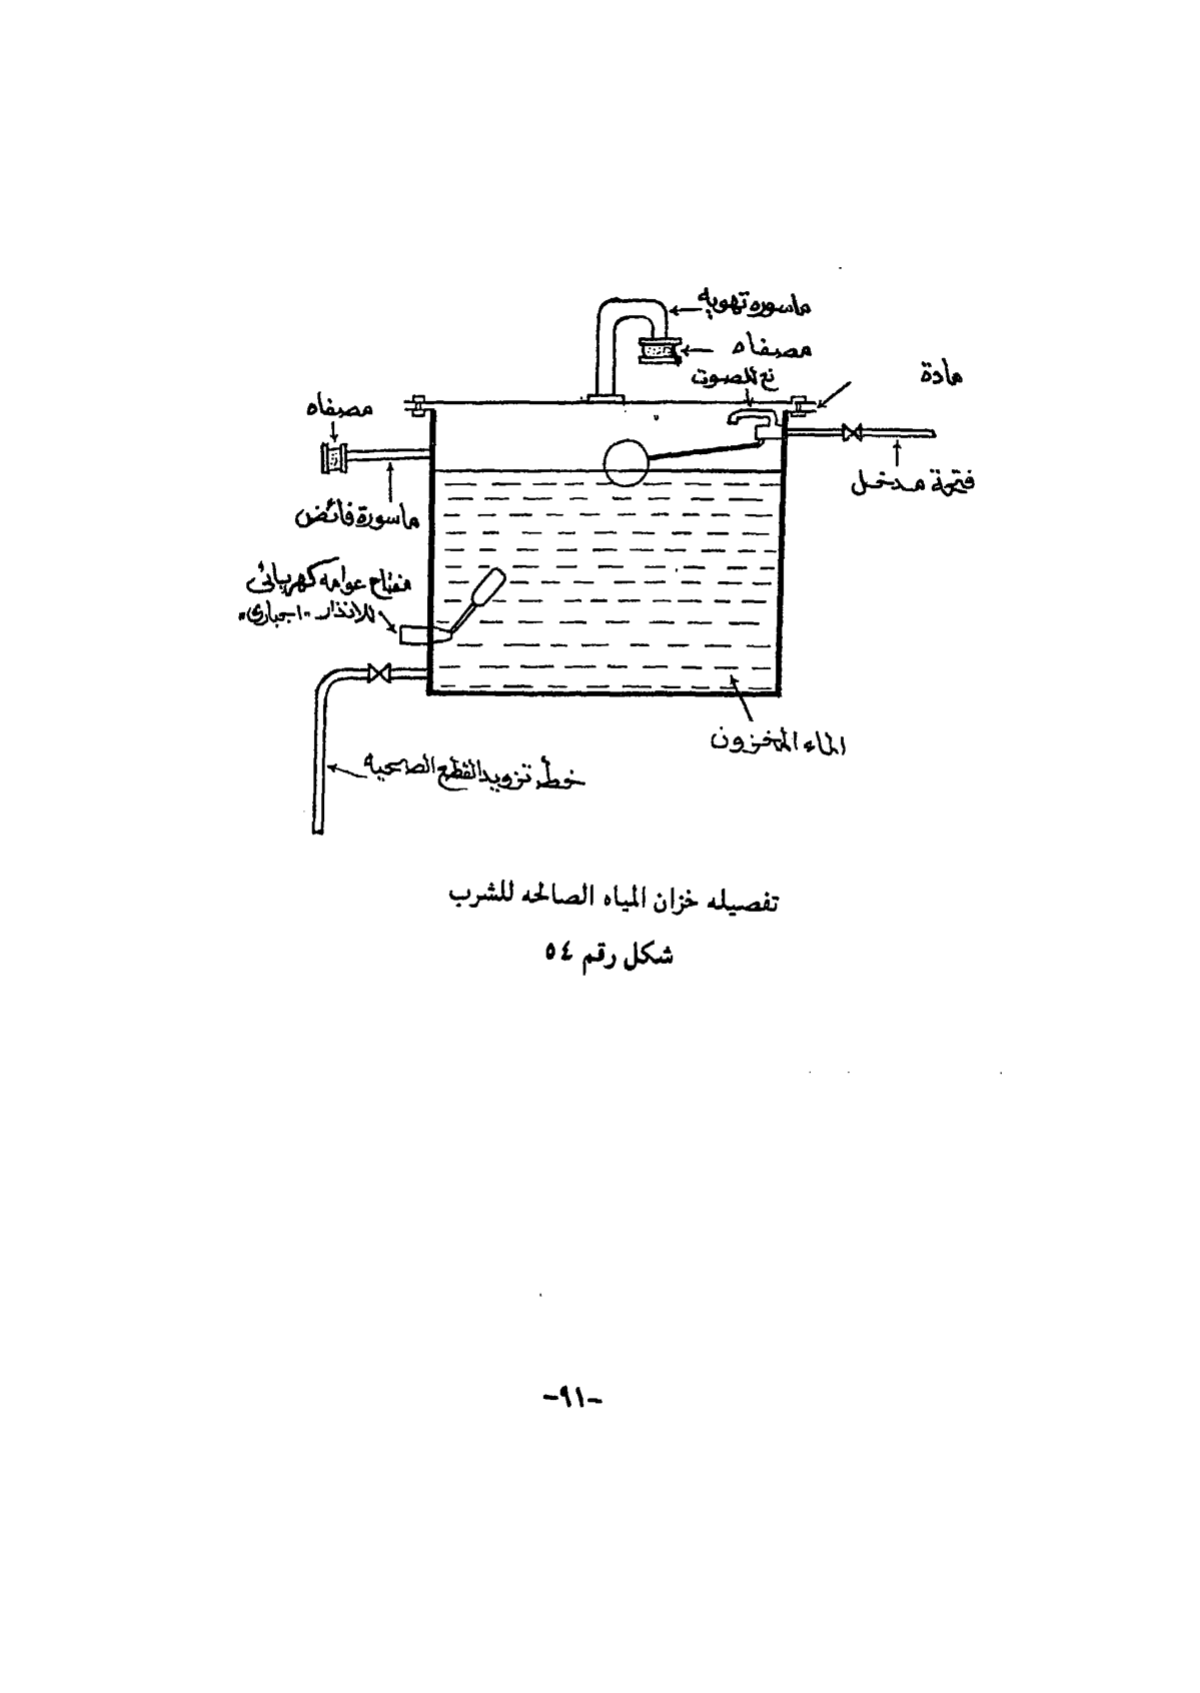 ماسوره تهويه
مصفاه
نع للصوت
مادة
مصفاه
فتحة مدخل
ماسورة فائض
مفتاح عوامه كهربائى
للانذار "اجبارى"
الماء المخزون
خط تزويد القطع الصحيه
تفصيله خزان المياه الصالحه للشرب
شكل رقم ٥٤
-٩١-